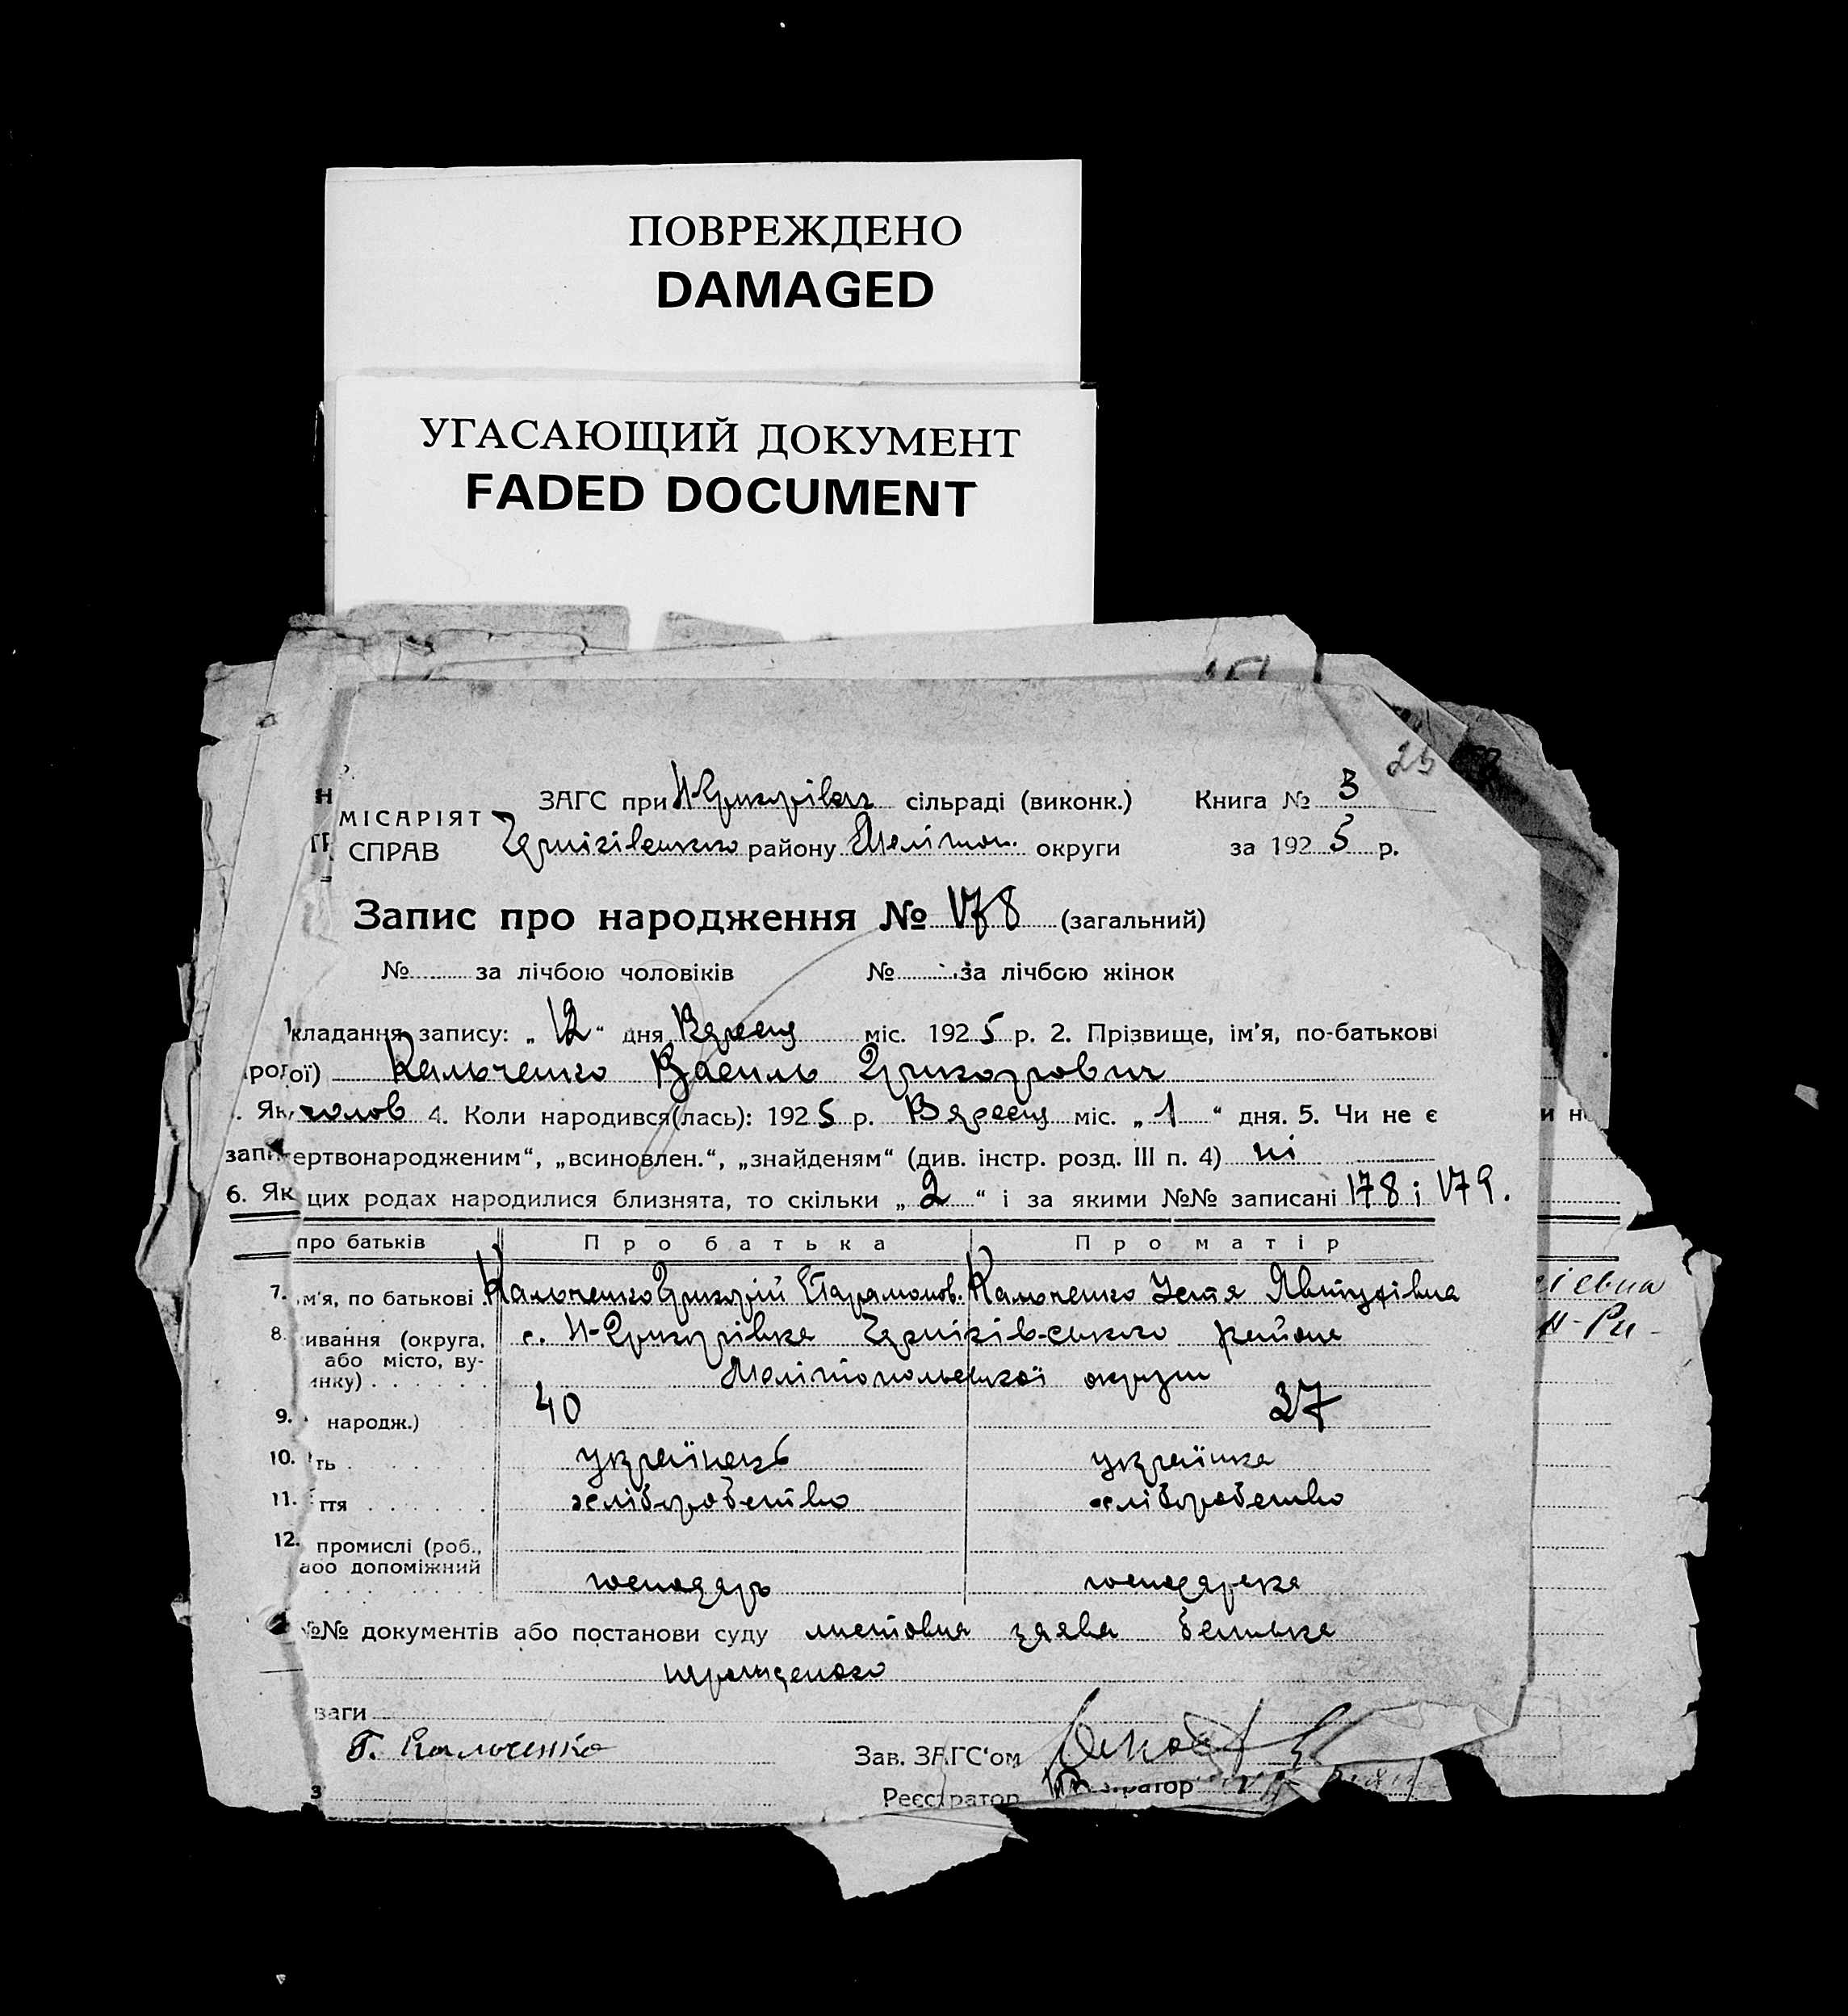 ПОВРЕЖДЕНО
DAMAGED
УГАСАЮЩИЙ ДОКУМЕНТ
FADED DOCUMENT
23
ЗАГС при Н-Григорівск сільраді (виконк.) Книга № 3
МІСАРІЯТ
СПРАВ
Чернігівського району Мелітоп. округи за 1925 р.
Запис про народження № 178 (загальний)
№ за лічбою чоловіків № за лічбою жінок
кладання запису: „12“ дня Вересня міс. 1925 р. 2. Прізвище, ім'я, по-батькові
ої) Кальченко Василь Григорович
Як чолов 4. Коли народився(лась): 1925 р. Вересня міс. „1“ дня. 5. Чи не є
ертвонародженим“, „всиновлен.“, „знайденям“ (див. інстр. розд. III п. 4) ні
6. Як цих родах народилися близнята, то скільки „2“ і за якими №№ записані 178 і 179.
про батьків Про батька Про матір
7. ім'я, по батькові Кальченко Григорій Парамонов. Кальченко Устя Явтухівна
8. ивання (округа, с. Н-Григорівка Чернігів-ського района
або місто, ву-
инку) Мелітопольської округи
9. народж.) 40 37
10. ть українець українка
11. ття хліборобство хліборобство
12. промислі (роб.,
або допоміжний
господарь господарка
№№ документів або постанови суду листовна заява батька
вати
Г. Кальченко Зав. ЗАГС'ом
Реєстратор